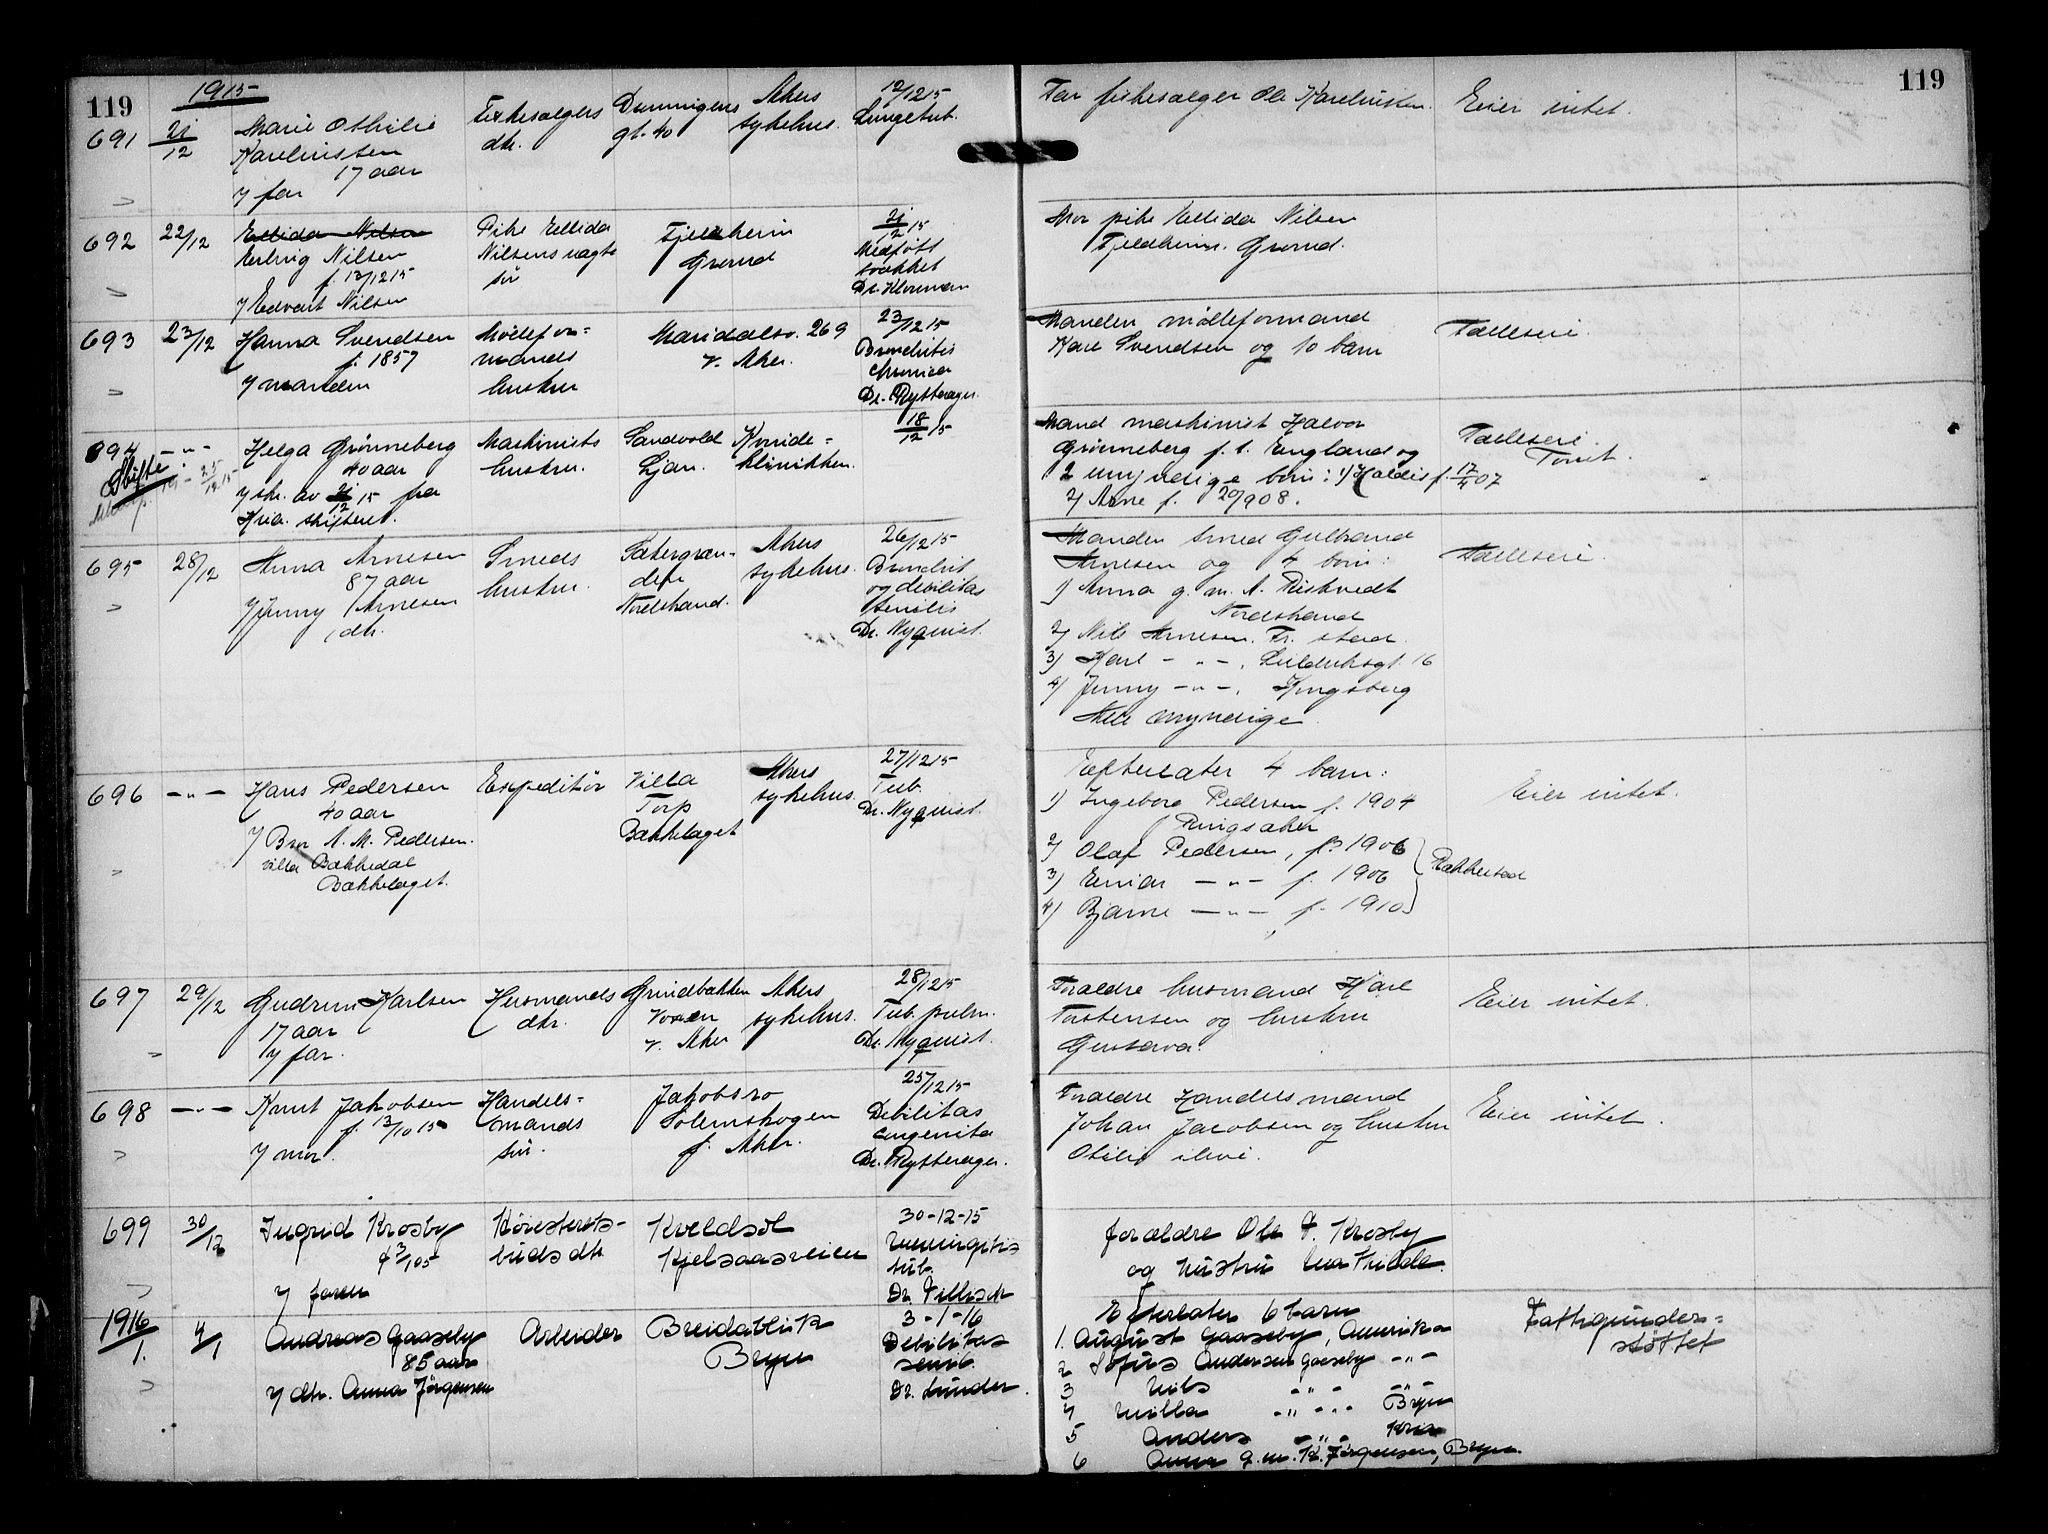 119
1915
119
691
21/12
Marie Othilie
17 aar
v/ far
Fiskesælgers
dtr.
gt. 40
Akers
sykehus.
12/12 15
Lungetub.
Far fiskesælger Ole
Eier intet.
692
22/12
Ellida Nilsen
Erling Nilsen
f. 12/12 15
v/ Edvart Nilsen
Pike Ellida
Nilsens uægte
søn
Fjeldheim
Grorud
21/12 15
Medfött
svakhet
Dr. Klouman
Mor pike Ellida Nilsen
Fjeldheim. Grorud.
693
23/12
Hanna Svendsen
f. 1857
v/ manden
Mölleformands
hustru
Maridalsv. 269
v. Aker.
23/12 15
Bronchitis
chronica
Dr. Rytterager.
Manden mölleformand
Karl Svendsen og 10 barn
Fælleseie.
694
- " -
Skifte
Helga Grönneberg
40 aar
v/ skr. av 21/12 15 fra
Kria. skifteret.
Maskinists
hustru.
Sandvold
Ljan.
Kvinde-
klinikken.
18/12 15
Mand maskinist Halvor
Grönneberg f. t. England og
2 umyndige börn: 1) Haldis f. 17/4 07
2) Arne f. 20/9 08.
Fælleseie.
Tomt.
695
28/12
Anna Arnesen
87 aar
v/ Jenny Arnesen
dtr.
Smeds
hustru.
Sætergranden
Nordstrand.
Akers
sykehus.
26/12 15
Bronchit
og debilitas
senilis
Dr. Nyquist.
Manden smed Gulbrand
Arnesen og 4 börn:
1) Anna g. m. A. Riskvedt
Nordstrand
2) Nils Arnesen. Fr. stad.
3) Karl - " -, gt. 16
4) Jenny - " -, Kongsberg
Alle myndige.
696
- " -
Hans Pedersen
40 aar
v/ Bror A. M. Pedersen.
villa Bækkedal
Bækkelaget.
Expeditör
Villa
Torp
Bækkelaget
Akers
sykehus.
27/12 15
Tub.
Dr. Nyquist.
Efterlater 4 barn:
1) Ingeborg Pedersen f. 1904
Ringsaker
2) Olaf Pedersen, f. 1906
3) Einar - " - f. 1906
4) Bjarne - " - f. 1910
Eier intet.
697
29/12
Gudrun Karlsen
17 aar
v/ far.
Husmands
dtr.
Grindbakken
Voxen
v. Aker
Akers
sykehus.
28/12 15
Tub. pulm.
Dr. Nyquist.
Foraldre husmand Karl
Torstensen og hustru
Gustava.
Eier intet.
698
- " -
Knut Jakobsen
f. 13/10 15
v/ mor.
Handelsmands
sön.
Jakobsro
Solemskogen
p. Aker.
25/12 15
Debilitas
congenita
Dr. Rytterager.
Foraldre Handelsmand
Johan Jacobsen og hustru
Eier intet.
699
30/12
Ingrid Krosby
f. 3/1 05
v/ faren
Höiesteretsbuds dtr
Kveldsol
Kjelsaasveien
30-12-15
meningitis
tub.
Dr.
forældre Ole J. Krosby
og hustru
1916
1.
4/1
Andreas Gaaseby
85 aar
v/ dtr. Anna Jörgensen
Arbeider
Breidablik
Bryn
3-1-16
Debilitas
senil.
Dr. Lunder.
Efterlater 6 barn
1. August Gaaseby, Amerika
2 Sofus Andersen Gaaseby - " -
3 Nils - " - - " -
4 Milla - " - Bryn
5 Anders - " - Kria
6 Anna g. m. K. Jörgensen, Bryn.
Fattigunderstöttet